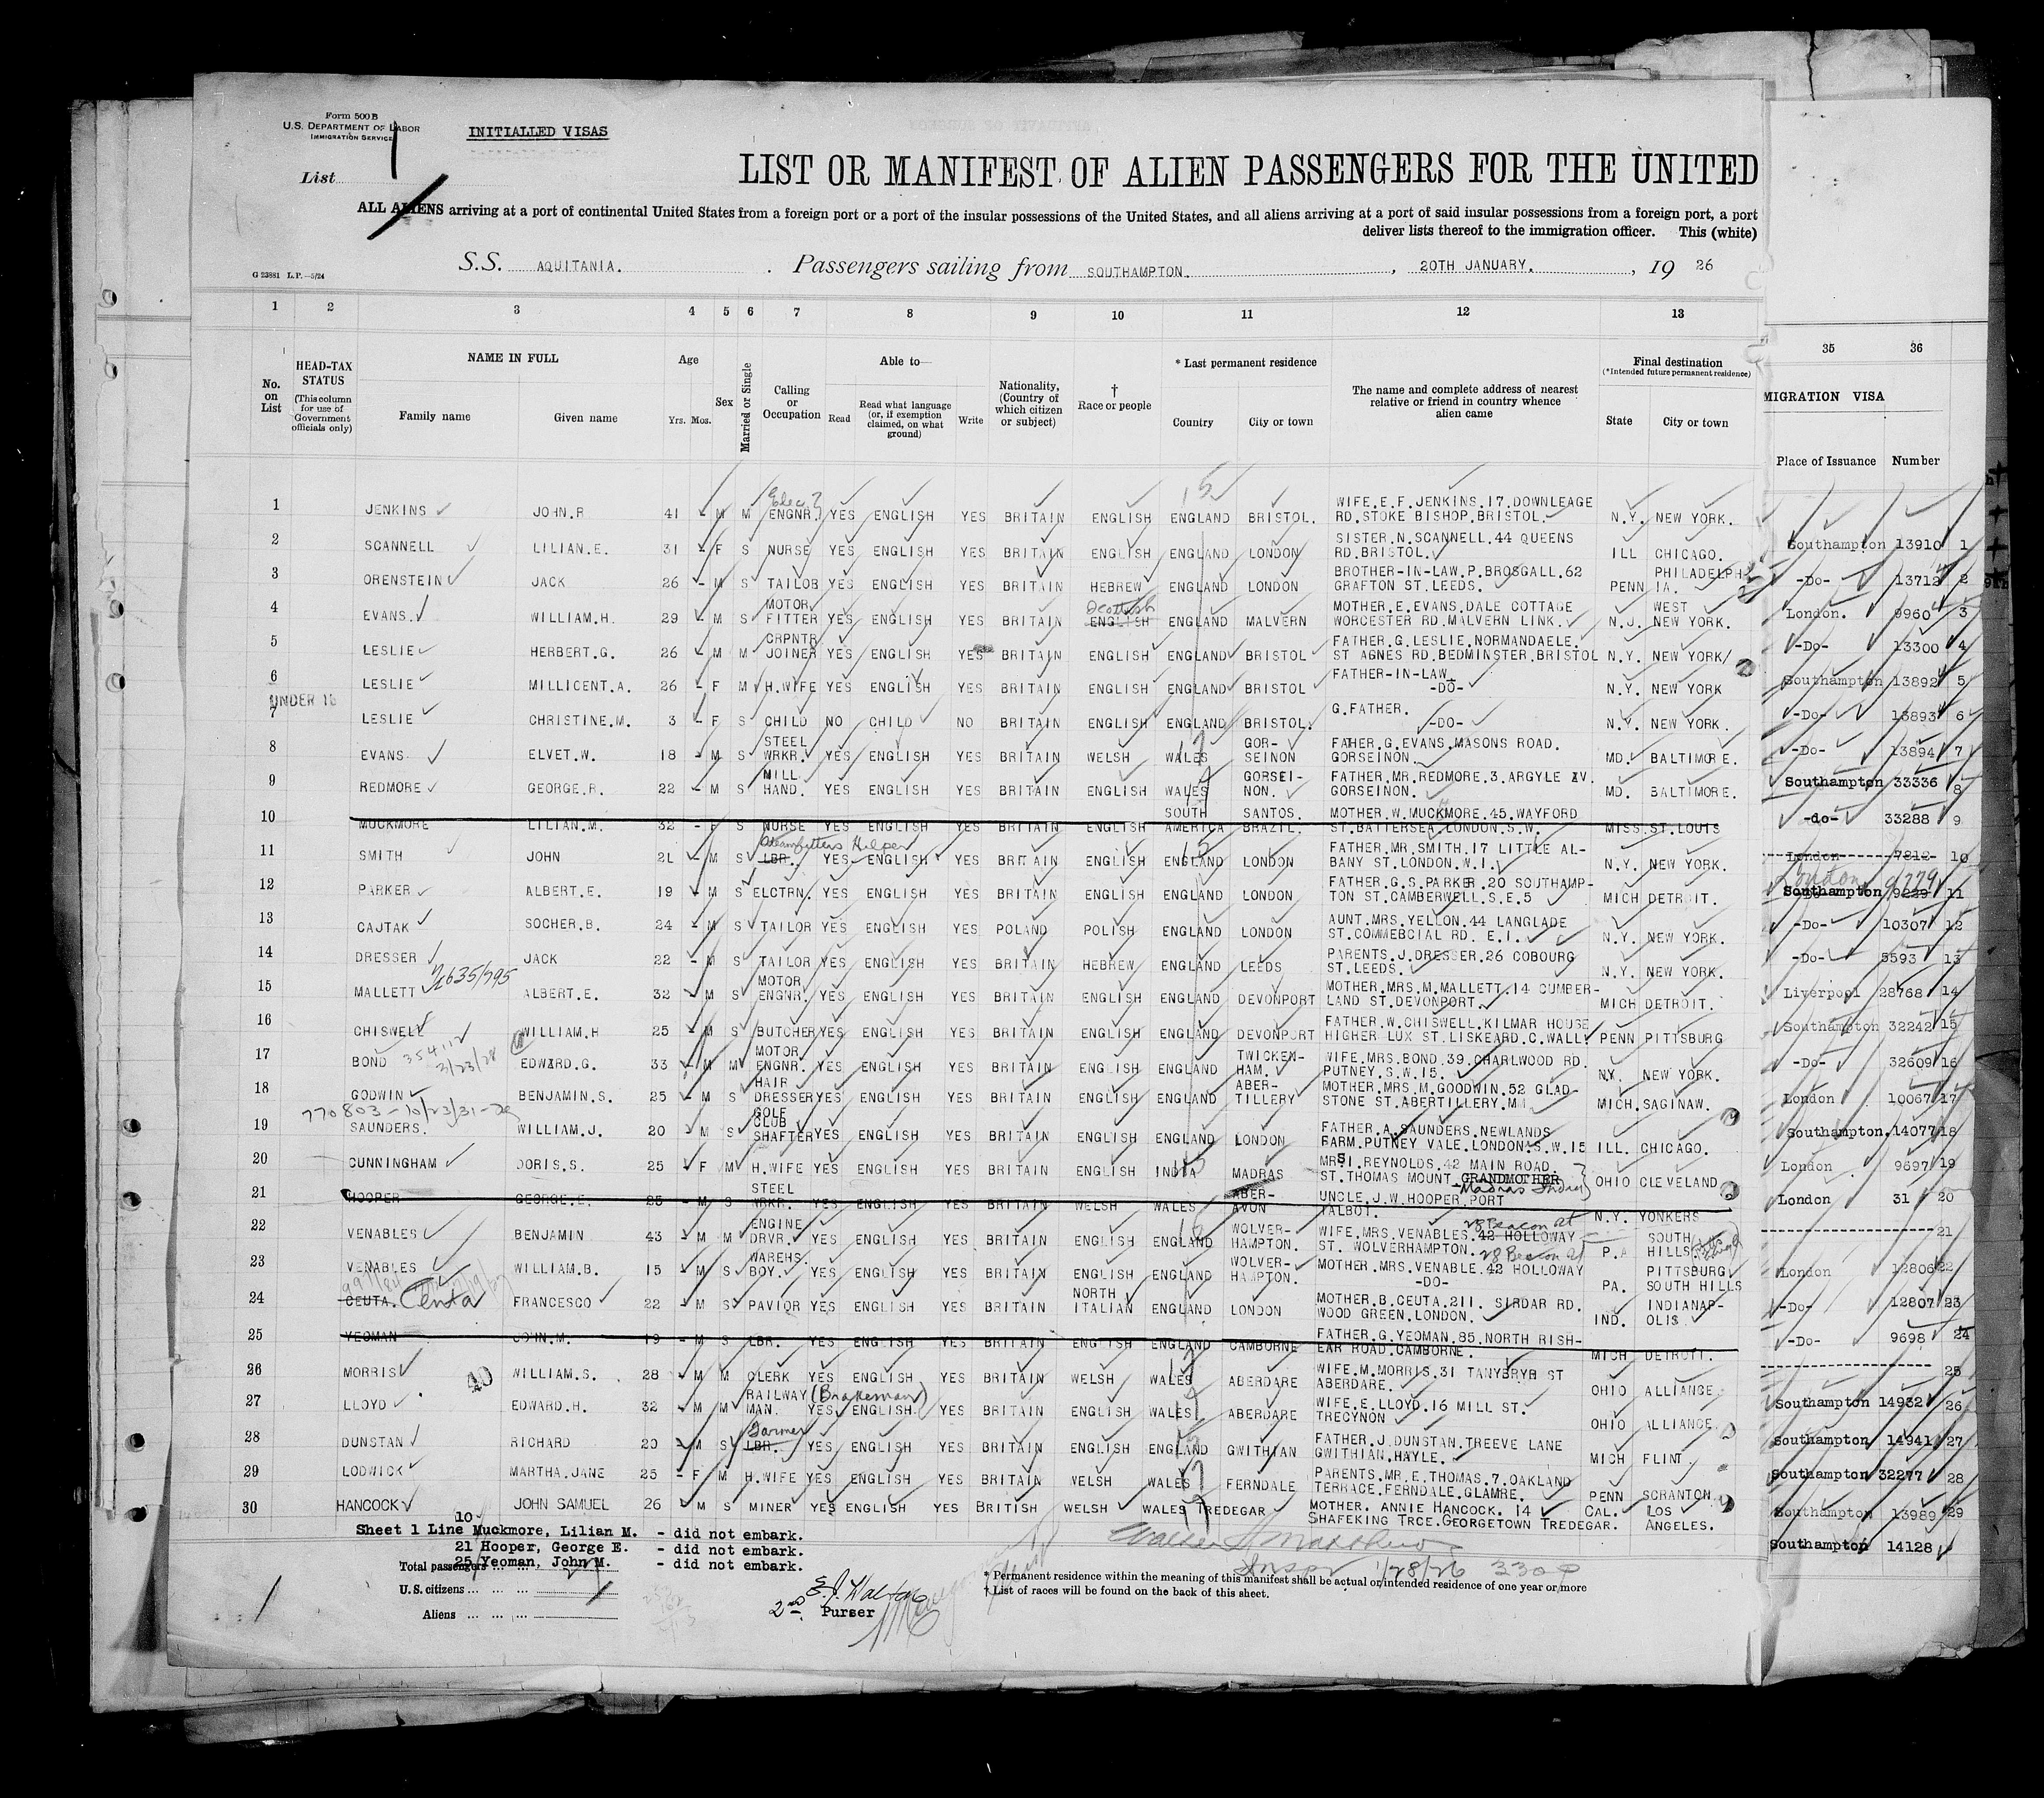 Form 500 B
U.S. DEPARTMENT OF LABOR
IMMIGRATION SERVICE
INITIALLED VISAS
List 1
LIST OR MANIFEST OF ALIEN PASSENGERS FOR THE UNITED
ALL ALIENS arriving at a port of continental United States from a foreign port or a port of the insular possessions of the United States, and all aliens arriving at a port of said insular possessions from a foreign port, a port
deliver lists thereof to the immigration officer. This (white)
G 23881 L.P.—5/24
S.S. AQUITANIA. Passengers sailing from SOUTHAMPTON. , 20TH JANUARY. , 19 26
1 2 3 4 5 6 7 8 9 10 11 12 13 35 36
No. on List
HEAD-TAX STATUS (This column for use of Government officials only)
NAME IN FULL Family name Given name
Age Yrs. Mos.
Sex
Married or Single
Calling or Occupation
Able to— Read Read what language (or, if exemption claimed, on what ground) Write
Nationality, (Country of which citizen or subject)
† Race or people
* Last permanent residence Country City or town
The name and complete address of nearest relative or friend in country whence alien came
Final destination (*Intended future permanent residence) State City or town
MIGRATION VISA Place of Issuance Number
1 JENKINS JOHN.R 41 - M M Elec. ENGNR. YES ENGLISH YES BRITAIN ENGLISH ENGLAND BRISTOL. WIFE.E.F.JENKINS.17.DOWNLEAGE RD.STOKE BISHOP.BRISTOL. N.Y. NEW YORK. Southampton 13910 1
2 SCANNELL LILIAN.E. 31 - F S NURSE YES ENGLISH YES BRITAIN ENGLISH ENGLAND LONDON SISTER.N.SCANNELL.44 QUEENS RD.BRISTOL. ILL CHICAGO. -Do- 13712 2
3 ORENSTEIN JACK 26 - M S TAILOR YES ENGLISH YES BRITAIN HEBREW ENGLAND LONDON BROTHER-IN-LAW.P.BROSGALL.62 GRAFTON ST.LEEDS. PENN PHILADELPH IA. London. 9960 3
4 EVANS. WILLIAM.H. 29 - M S MOTOR FITTER YES ENGLISH YES BRITAIN Scottish ENGLISH ENGLAND MALVERN MOTHER.E.EVANS.DALE COTTAGE WORCESTER RD.MALVERN LINK. N.J. WEST NEW YORK. -Do- 13300 4
5 LESLIE HERBERT.G. 26 - M M CRPNTR JOINER YES ENGLISH YES BRITAIN ENGLISH ENGLAND BRISTOL FATHER.G.LESLIE.NORMANDAELE. ST AGNES RD.BEDMINSTER.BRISTOL N.Y. NEW YORK/ Southampton 13892 5
6 LESLIE MILLICENT.A. 26 - F M H.WIFE YES ENGLISH YES BRITAIN ENGLISH ENGLAND BRISTOL FATHER-IN-LAW. -DO- N.Y. NEW YORK -Do- 13893 6
UNDER 16
7 LESLIE CHRISTINE.M. 3 - F S CHILD NO CHILD NO BRITAIN ENGLISH ENGLAND BRISTOL. G.FATHER. -DO- N.Y. NEW YORK. -Do- 13894 7
8 EVANS. ELVET.W. 18 - M S STEEL WRKR. YES ENGLISH YES BRITAIN WELSH WALES GOR-SEINON FATHER.G.EVANS.MASONS ROAD. GORSEINON. MD. BALTIMORE. Southampton 33336 8
9 REDMORE GEORGE.R. 22 - M S MILL HAND. YES ENGLISH YES BRITAIN ENGLISH WALES GORSEI-NON. FATHER.MR.REDMORE.3.ARGYLE AV. GORSEINON. MD. BALTIMORE. -do- 33288 9
10 MUCKMORE LILIAN.M. 32 - F S NURSE YES ENGLISH YES BRITAIN ENGLISH SOUTH AMERICA SANTOS. BRAZIL. MOTHER.W.MUCKMORE.45.WAYFORD ST.BATTERSEA.LONDON.S.W. MISS.ST.LOUIS London 7812 10
11 SMITH JOHN 21 - M S Steamfitters Helper LBR. YES ENGLISH YES BRITAIN ENGLISH ENGLAND LONDON FATHER.MR.SMITH.17 LITTLE AL-BANY ST.LONDON.W.1. N.Y. NEW YORK. London 9229 Southampton 9229 11
12 PARKER ALBERT.E. 19 - M S ELCTRN. YES ENGLISH YES BRITAIN ENGLISH ENGLAND LONDON FATHER.G.S.PARKER.20 SOUTHAMP-TON ST.CAMBERWELL.S.E.5 MICH DETROIT. -Do- 10307 12
13 CAJTAK SOCHER.B. 24 - M S TAILOR YES ENGLISH YES POLAND POLISH ENGLAND LONDON AUNT.MRS.YELLON.44 LANGLADE ST.COMMERCIAL RD. E.1. N.Y. NEW YORK. -Do- 5593 13
14 DRESSER JACK 22 - M S TAILOR YES ENGLISH YES BRITAIN HEBREW ENGLAND LEEDS PARENTS.J.DRESSER.26 COBOURG ST.LEEDS. N.Y. NEW YORK. Liverpool 28768 14
15 MALLETT ALBERT.E. 32 - M S MOTOR ENGNR. YES ENGLISH YES BRITAIN ENGLISH ENGLAND DEVONPORT MOTHER.MRS.M.MALLETT.14 CUMBER-LAND ST.DEVONPORT. MICH DETROIT. Southampton 32242 15
16 CHISWELL WILLIAM.H 25 - M S BUTCHER YES ENGLISH YES BRITAIN ENGLISH ENGLAND DEVONPORT FATHER.W.CHISWELL.KILMAR HOUSE HIGHER LUX ST.LISKEARD.C.WALL. PENN PITTSBURG -Do- 32609 16
17 BOND 354112 3/23/28 EDWARD.G. 33 - M M MOTOR ENGNR. YES ENGLISH YES BRITAIN ENGLISH ENGLAND TWICKEN-HAM. WIFE.MRS.BOND.39.CHARLWOOD RD. PUTNEY.S.W.15. NY. NEW YORK. London 10067 17
18 GODWIN BENJAMIN.S. 25 - M S HAIR DRESSER YES ENGLISH YES BRITAIN ENGLISH ENGLAND ABER-TILLERY MOTHER.MRS.M.GOODWIN.52 GLAD-STONE ST.ABERTILLERY. MICH.SAGINAW. Southampton. 14077 18
770803-10/23/31
19 SAUNDERS. WILLIAM.J. 20 - M S GOLF CLUB SHAFTER YES ENGLISH YES BRITAIN ENGLISH ENGLAND LONDON FATHER.A.SAUNDERS.NEWLANDS FARM.PUTNEY VALE.LONDON.S.W.15 ILL. CHICAGO. London 9697 19
20 CUNNINGHAM DORIS.S. 25 - F M H.WIFE YES ENGLISH YES BRITAIN ENGLISH INDIA MADRAS MRS.REYNOLDS.42 MAIN ROAD. ST.THOMAS MOUNT GRANDMOTHER Madras India OHIO CLEVELAND London 31 20
21 HOOPER GEORGE.E. 25 - M S STEEL WRKR. YES ENGLISH YES BRITAIN WELSH WALES ABER-AVON UNCLE.J.W.HOOPER.PORT TALBOT. N.Y. YONKERS 21
22 VENABLES BENJAMIN 43 - M M ENGINE DRVR. YES ENGLISH YES BRITAIN ENGLISH ENGLAND WOLVER-HAMPTON. WIFE.MRS.VENABLES.42 HOLLOWAY 28 Beacon st ST. WOLVERHAMPTON. P.A SOUTH HILLS. London 12806 22
23 VENABLES WILLIAM.B. 15 - M S WAREHS. BOY. YES ENGLISH YES BRITAIN ENGLISH ENGLAND WOLVER-HAMPTON. MOTHER.MRS.VENABLE.42 HOLLOWAY 28 Beacon st -DO- PA. PITTSBURG SOUTH HILLS -Do- 12807 23
24 CEUTA. Centa FRANCESCO 22 - M S PAVIOR YES ENGLISH YES BRITAIN NORTH ITALIAN ENGLAND LONDON MOTHER.B.CEUTA.211. SIRDAR RD. WOOD GREEN.LONDON. IND. INDIANAP-OLIS -Do- 9698 24
25 YEOMAN JOHN.M. 19 - M S LBR. YES ENGLISH YES BRITAIN ENGLISH ENGLAND CAMBORNE FATHER.G.YEOMAN.85.NORTH RISH-EAR ROAD.CAMBORNE. MICH DETROIT. 25
26 MORRIS WILLIAM.S. 28 - M M CLERK YES ENGLISH YES BRITAIN WELSH WALES ABERDARE WIFE.M.MORRIS.31 TANYBRYR ST ABERDARE. OHIO ALLIANCE. Southampton 14932 26
27 LLOYD EDWARD.H. 32 - M M RAILWAY MAN. (Brakeman) YES ENGLISH. YES BRITAIN ENGLISH WALES ABERDARE WIFE.E.LLOYD.16 MILL ST. TRECYNON OHIO ALLIANCE. Southampton 14941 27
28 DUNSTAN RICHARD 20 - M S Farmer LBR. YES ENGLISH YES BRITAIN ENGLISH ENGLAND GWITHIAN FATHER.J.DUNSTAN.TREEVE LANE GWITHIAN.HAYLE. MICH FLINT. Southampton 32277 28
29 LODWICK MARTHA.JANE 25 - F M H.WIFE YES ENGLISH YES BRITAIN WELSH WALES FERNDALE PARENTS.MR.E.THOMAS.7.OAKLAND TERRACE.FERNDALE.GLAMRE. PENN SCRANTON. Southampton 13989 29
30 HANCOCK JOHN SAMUEL 26 - M S MINER YES ENGLISH YES BRITISH WELSH WALES TREDEGAR MOTHER. ANNIE HANCOCK. 14 SHAFEKING TRCE.GEORGETOWN TREDEGAR. CAL. LOS ANGELES. Southampton 14128
Sheet 1 Line 10 Muckmore, Lilian M. - did not embark.
21 Hooper, George E. - did not embark.
25 Yeoman, John M. - did not embark.
Total passengers
U.S. citizens
Aliens
2nd Purser
1/28/26
* Permanent residence within the meaning of this manifest shall be actual or intended residence of one year or more
† List of races will be found on the back of this sheet.